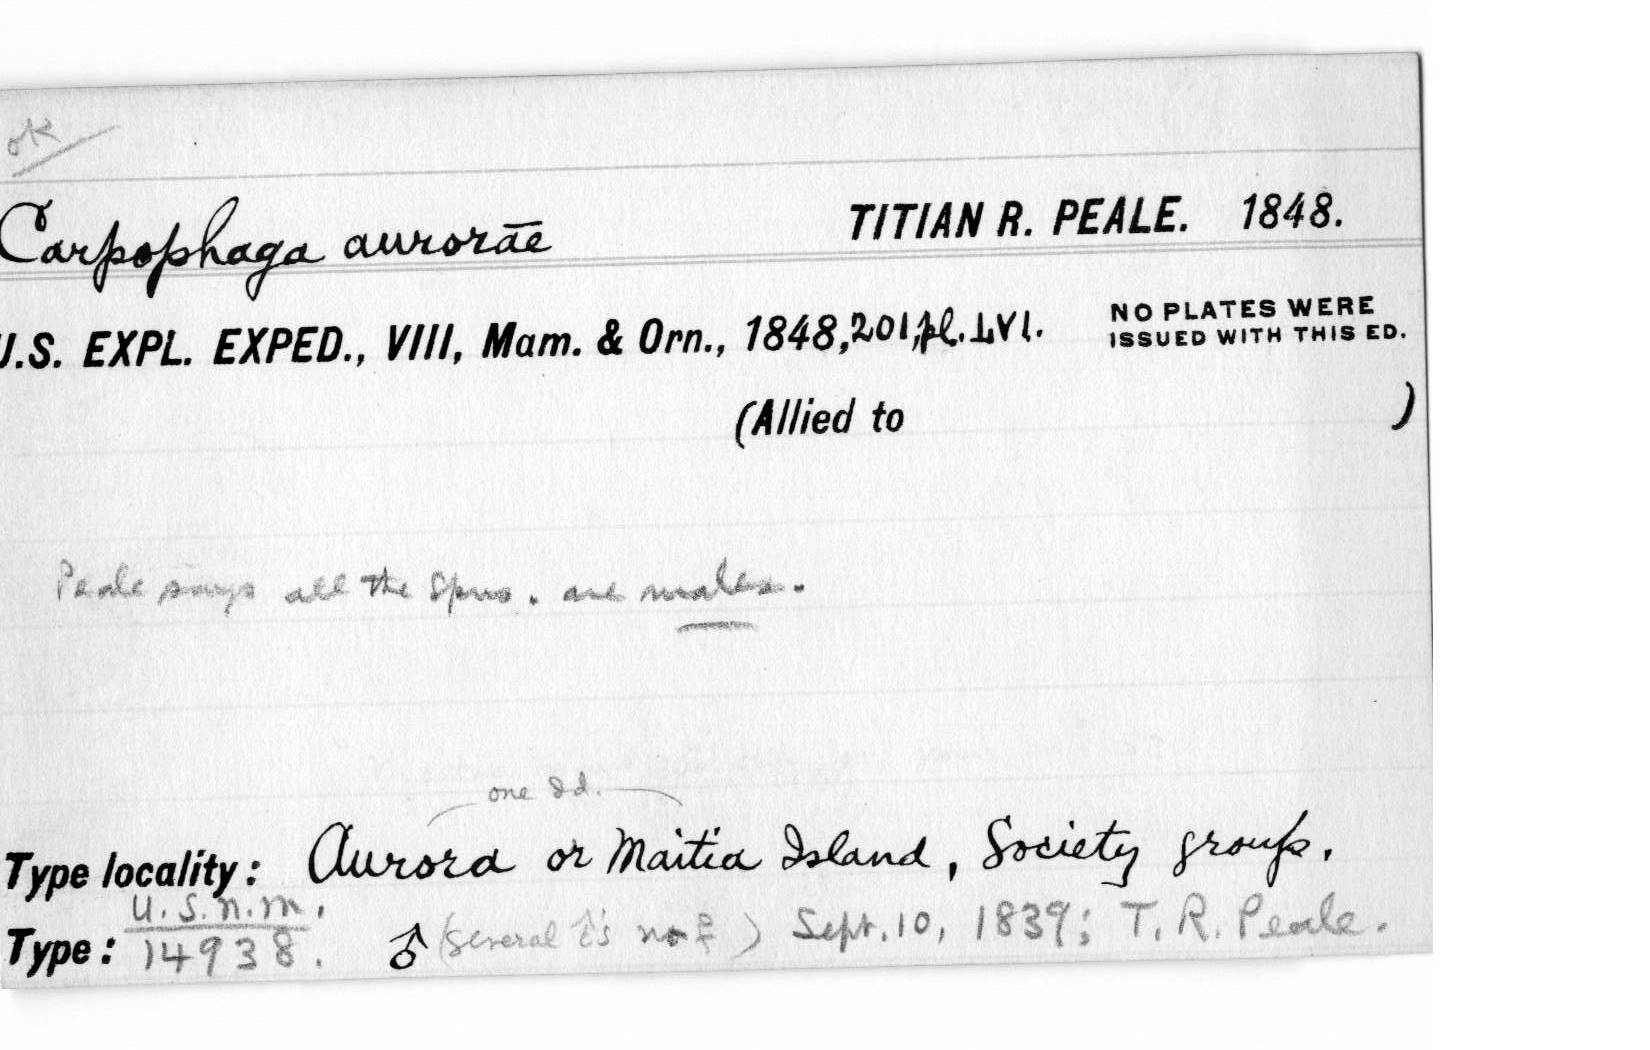 ok
Carpophaga aurorae TITIAN R. PEALE. 1848.
U.S. EXPL. EXPED., VIII, Mam. & Orn., 1848, 201, pl. LVI. NO PLATES WERE
ISSUED WITH THIS ED.
(Allied to )
Peale says all the spns. are males.
one Id.
Aurora or Maitia Island, Society group.
Type locality:
U.S.N.M.
Type: 14938. ♂ (several ♂'s no ♀) Sept. 10, 1839; T. R. Peale.